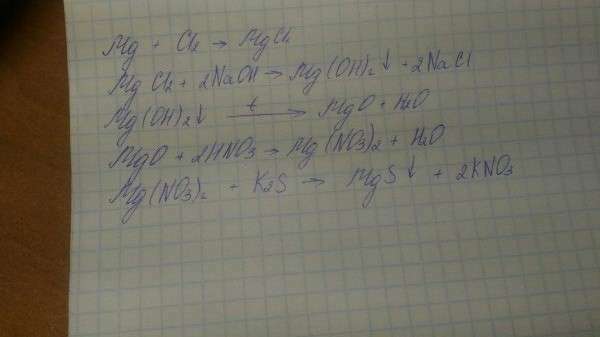 Mg + Cl₂ → MgCl₂
MgCl₂ + 2NaOH → Mg(OH)₂↓ + 2NaCl
Mg(OH)₂↓ —t→ MgO + H₂O
MgO + 2HNO₃ → Mg(NO₃)₂ + H₂O
Mg(NO₃)₂ + K₂S → MgS↓ + 2KNO₃